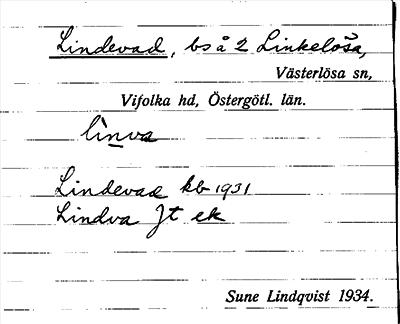 Lindevad, bs å 2 Linkelösa,
Västerlösa sn,
Vifolka hd, Östergötl. län.
lìnva
Lindevad kb 1931
Lindva Jt ek
Sune Lindqvist 1934.